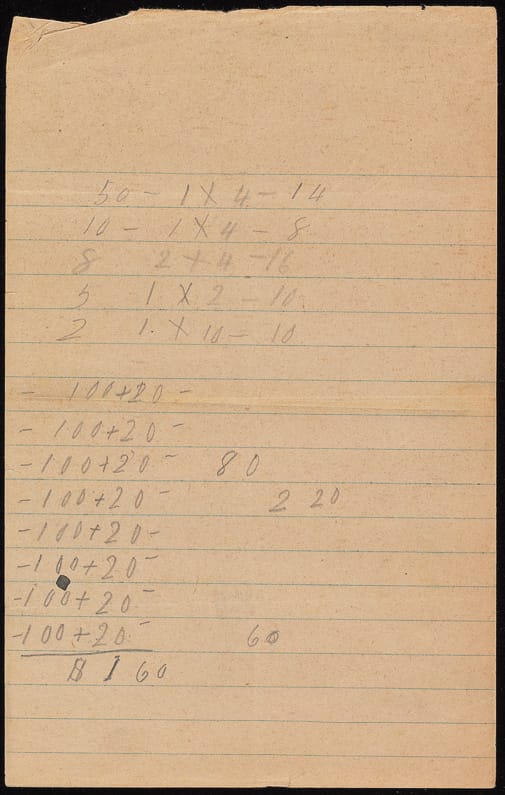 50 - 1 X 4 - 14
10 - 1 X 4 - 8
8 2 X 4 - 16
5 1 X 2 - 10
2 1. X 10 - 10
- 100+20 -
- 100+20 -
- 100+20 - 80
- 100+20 - 2 20
- 100+20 -
- 100+20 -
- 100+20 -
- 100+20 - 60
8 1 60